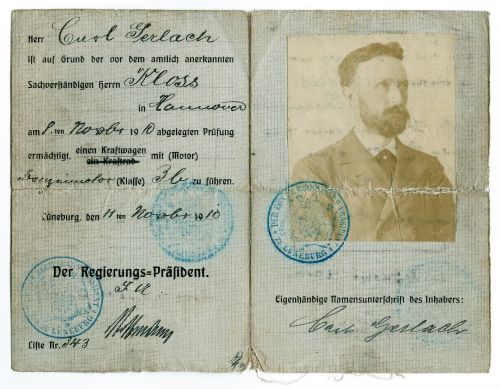 Herr Curl Gerlach
ist auf Grund der vor dem amtlich anerkannten
Sachverständigen Herrn Kloss
in Hannover
am 8.ten Novbr 1910 abgelegten Prüfung
ermächtigt, einen Kraftwagen
ein Kraftrad mit (Motor)
(Klasse) 3b zu führen.
Lüneburg, den 11ten Novbr 1910
Der Regierungs-Präsident.
I A
Liste Nr. 343
LÜNEBURG
Eigenhändige Namensunterschrift des Inhabers:
Carl Gerlach